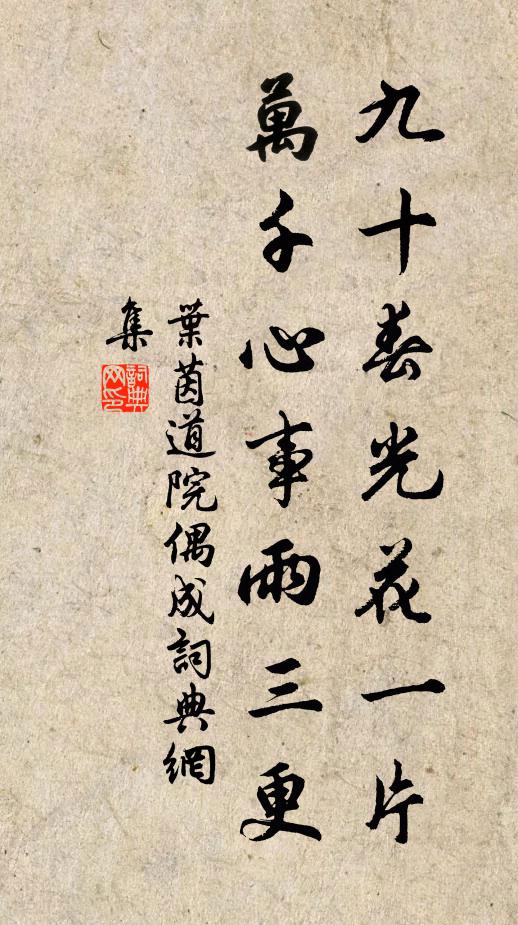 九十春光花一片
萬千心事雨三更
葉茵道院偶成詞典網
集
詞典
网印